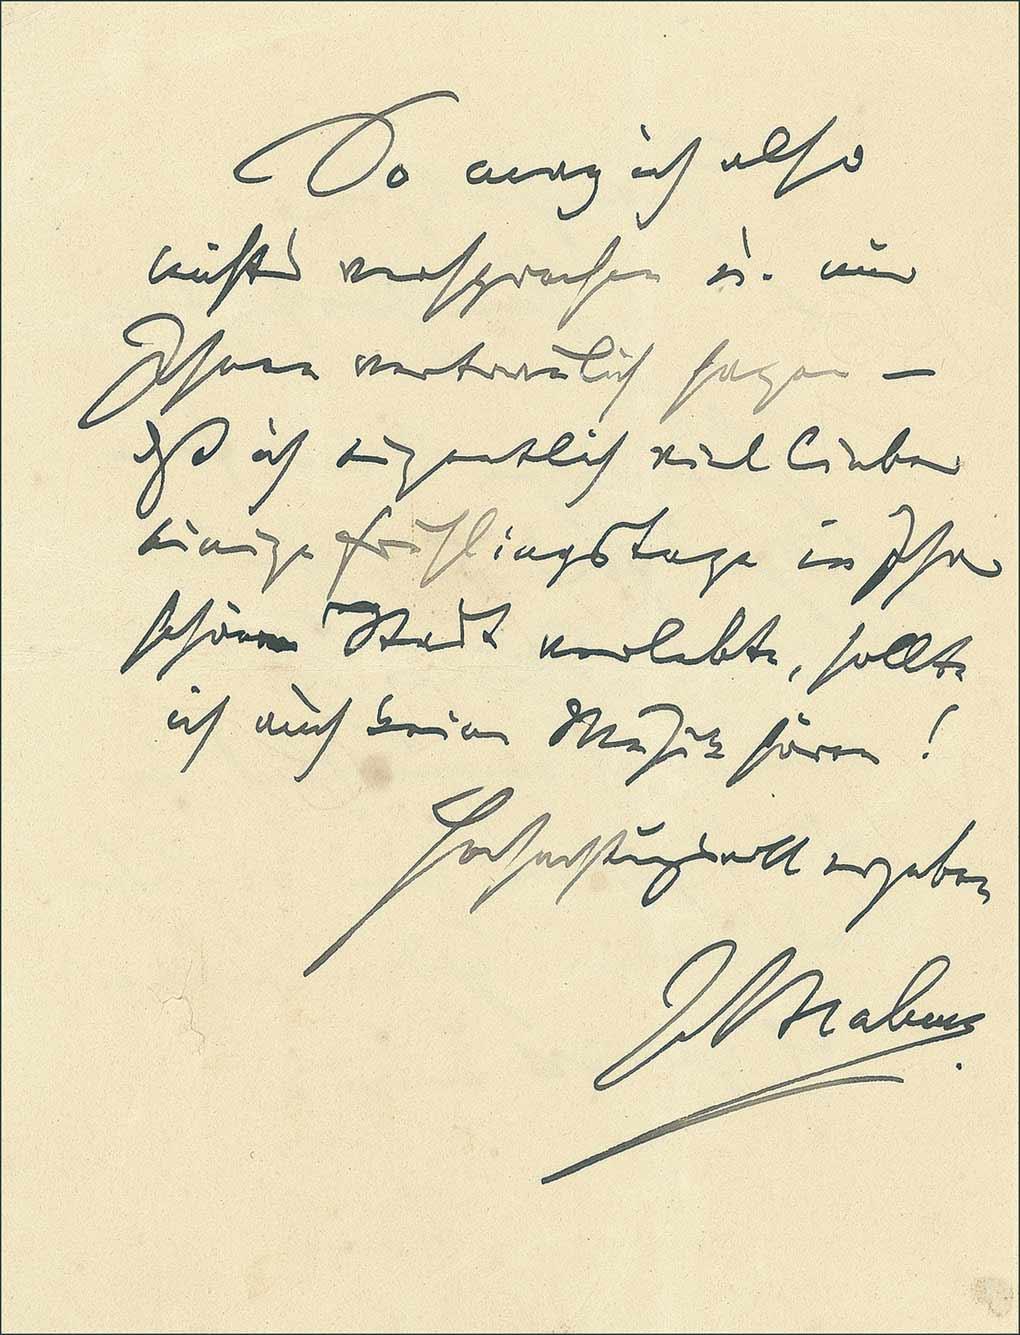 So mag ich also
nichts versprechen u. nur
Ihnen vertraulich sagen –
daß ich eigentlich viel lieber
einige Frühlingstage in Ihrer
schönen Stadt verlebte, sollte
ich auch keine Musik hören!
Hochachtungsvoll ergeben
J. Brahms.